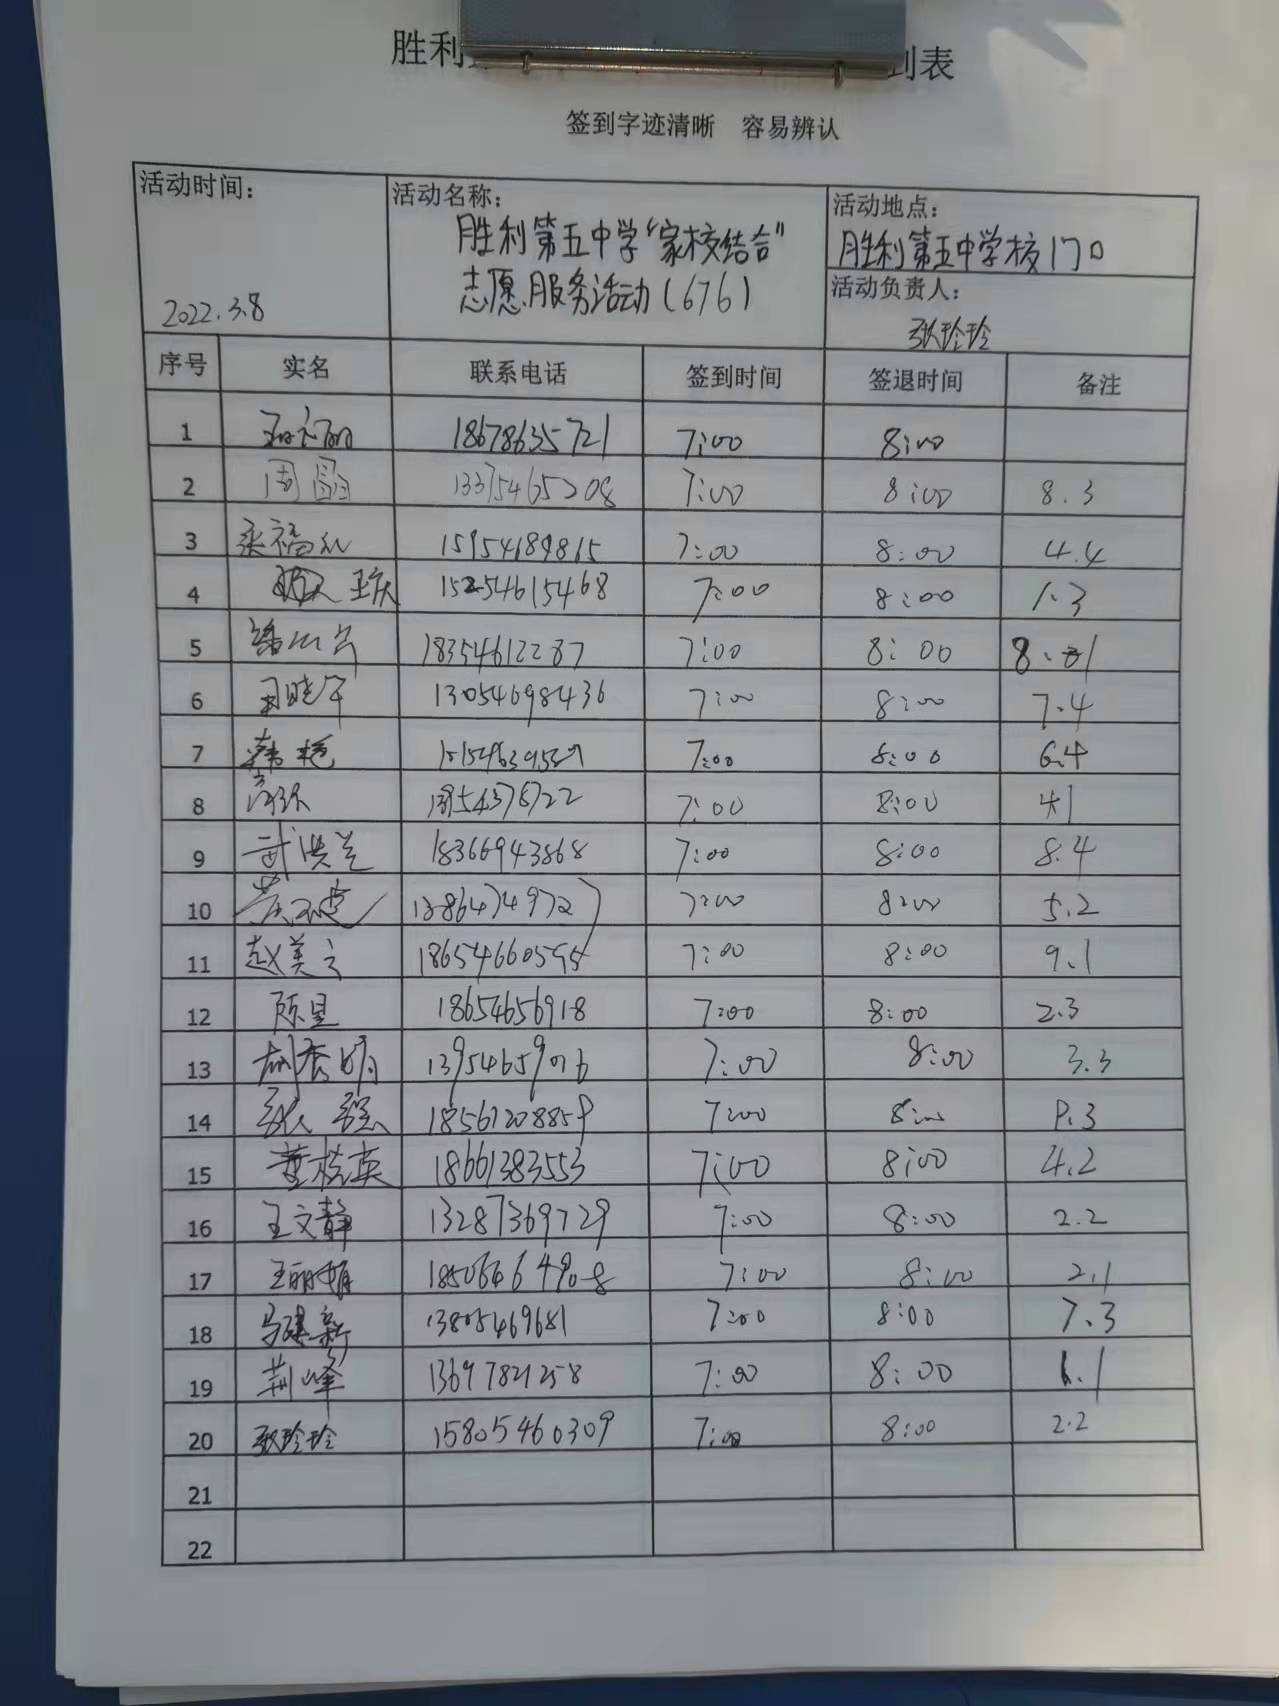 胜利 到表
签到字迹清晰 容易辨认
活动时间： 活动名称： 活动地点：
胜利第五中学“家校结合” 胜利第五中学校门口
志愿服务活动（676） 活动负责人：
2022.3.8 玲玲
序号 实名 联系电话 签到时间 签退时间 备注
1 18678635721 7:00 8:00
2 周 13375465208 7:00 8:00 8.3
3 15954689865 7:00 8:00 4.4
4 15254615468 7:00 8:00 1.3
5 18354612287 7:00 8:00 8.1
6 13054698436 7:00 8:00 7.4
7 韩艳 7:00 8:00 6.4
8 7:00 8:00 4.1
9 武洪兰 18366943868 7:00 8:00 8.4
10 7:00 8:00 5.2
11 赵美云 18654660595 7:00 8:00 9.1
12 陈昱 18654656918 7:00 8:00 2.3
13 7:00 8:00 3.3
14 18561208859 7:00 8:00 3
15 董桂英 18661383553 7:00 8:00 4.2
16 王文静 13287369729 7:00 8:00 2.2
17 王丽娟 18506464908 7:00 8:00 2.1
18 马建新 13805469681 7:00 8:00 7.3
19 荆峰 13697821258 7:00 8:00 1
20 玲玲 15805460309 7:00 8:00 2.2
21
22